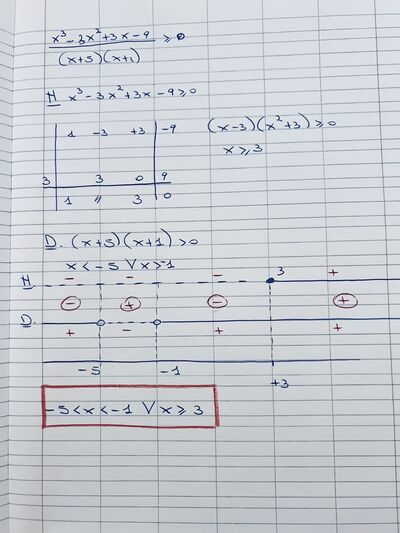 x³-3x²+3x-9 ≥ 0
(x+5)(x+1)
N x³-3x²+3x-9 ≥ 0
1 -3 +3 -9
(x-3)(x²+3) ≥ 0
x ≥ 3
3 3 0 9
1 // 3 0
D. (x+5)(x+1) > 0
x < -5 ∨ x > -1
N. - - - 3 +
- + - +
D. + - + +
-5 -1 +3
-5 < x < -1 ∨ x ≥ 3